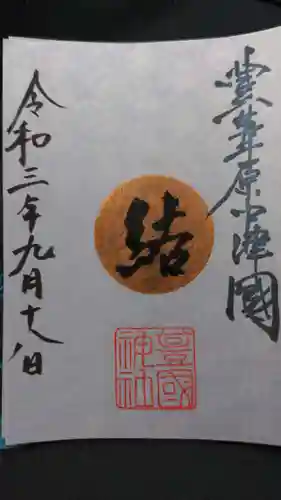 豐葦原中津國
結
豊國神社
令和三年九月十八日